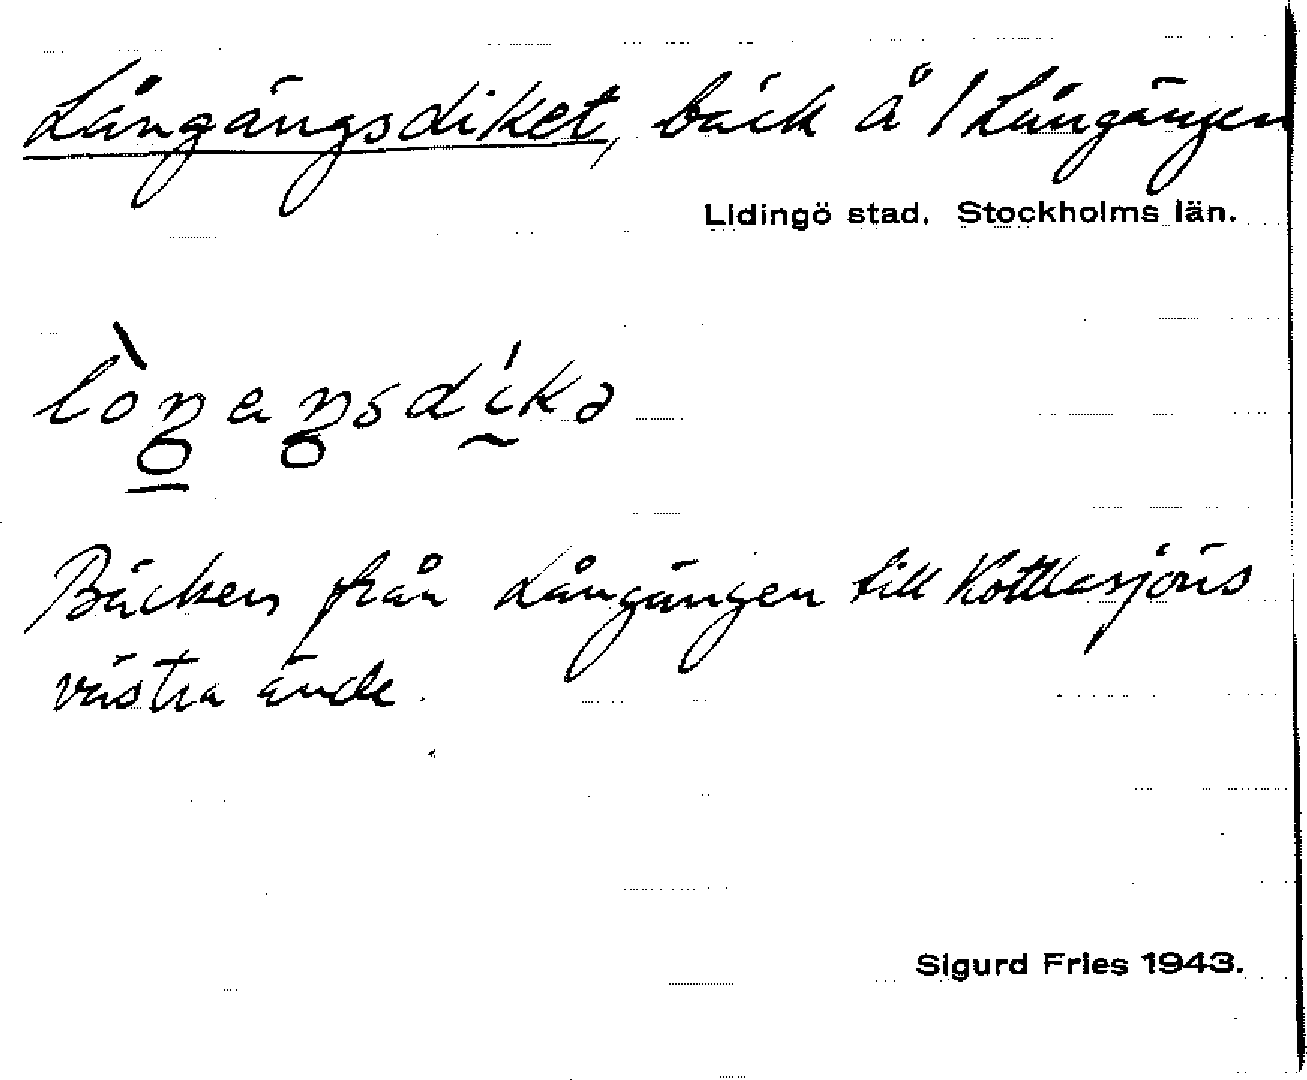 Långängsdiket, bäck å / Långängen
Lidingö stad. Stockholms län.
lòŋeŋsdíkə
Bäcken från Långängen till Kottlasjöns
västra ände.
Sigurd Fries 1943.